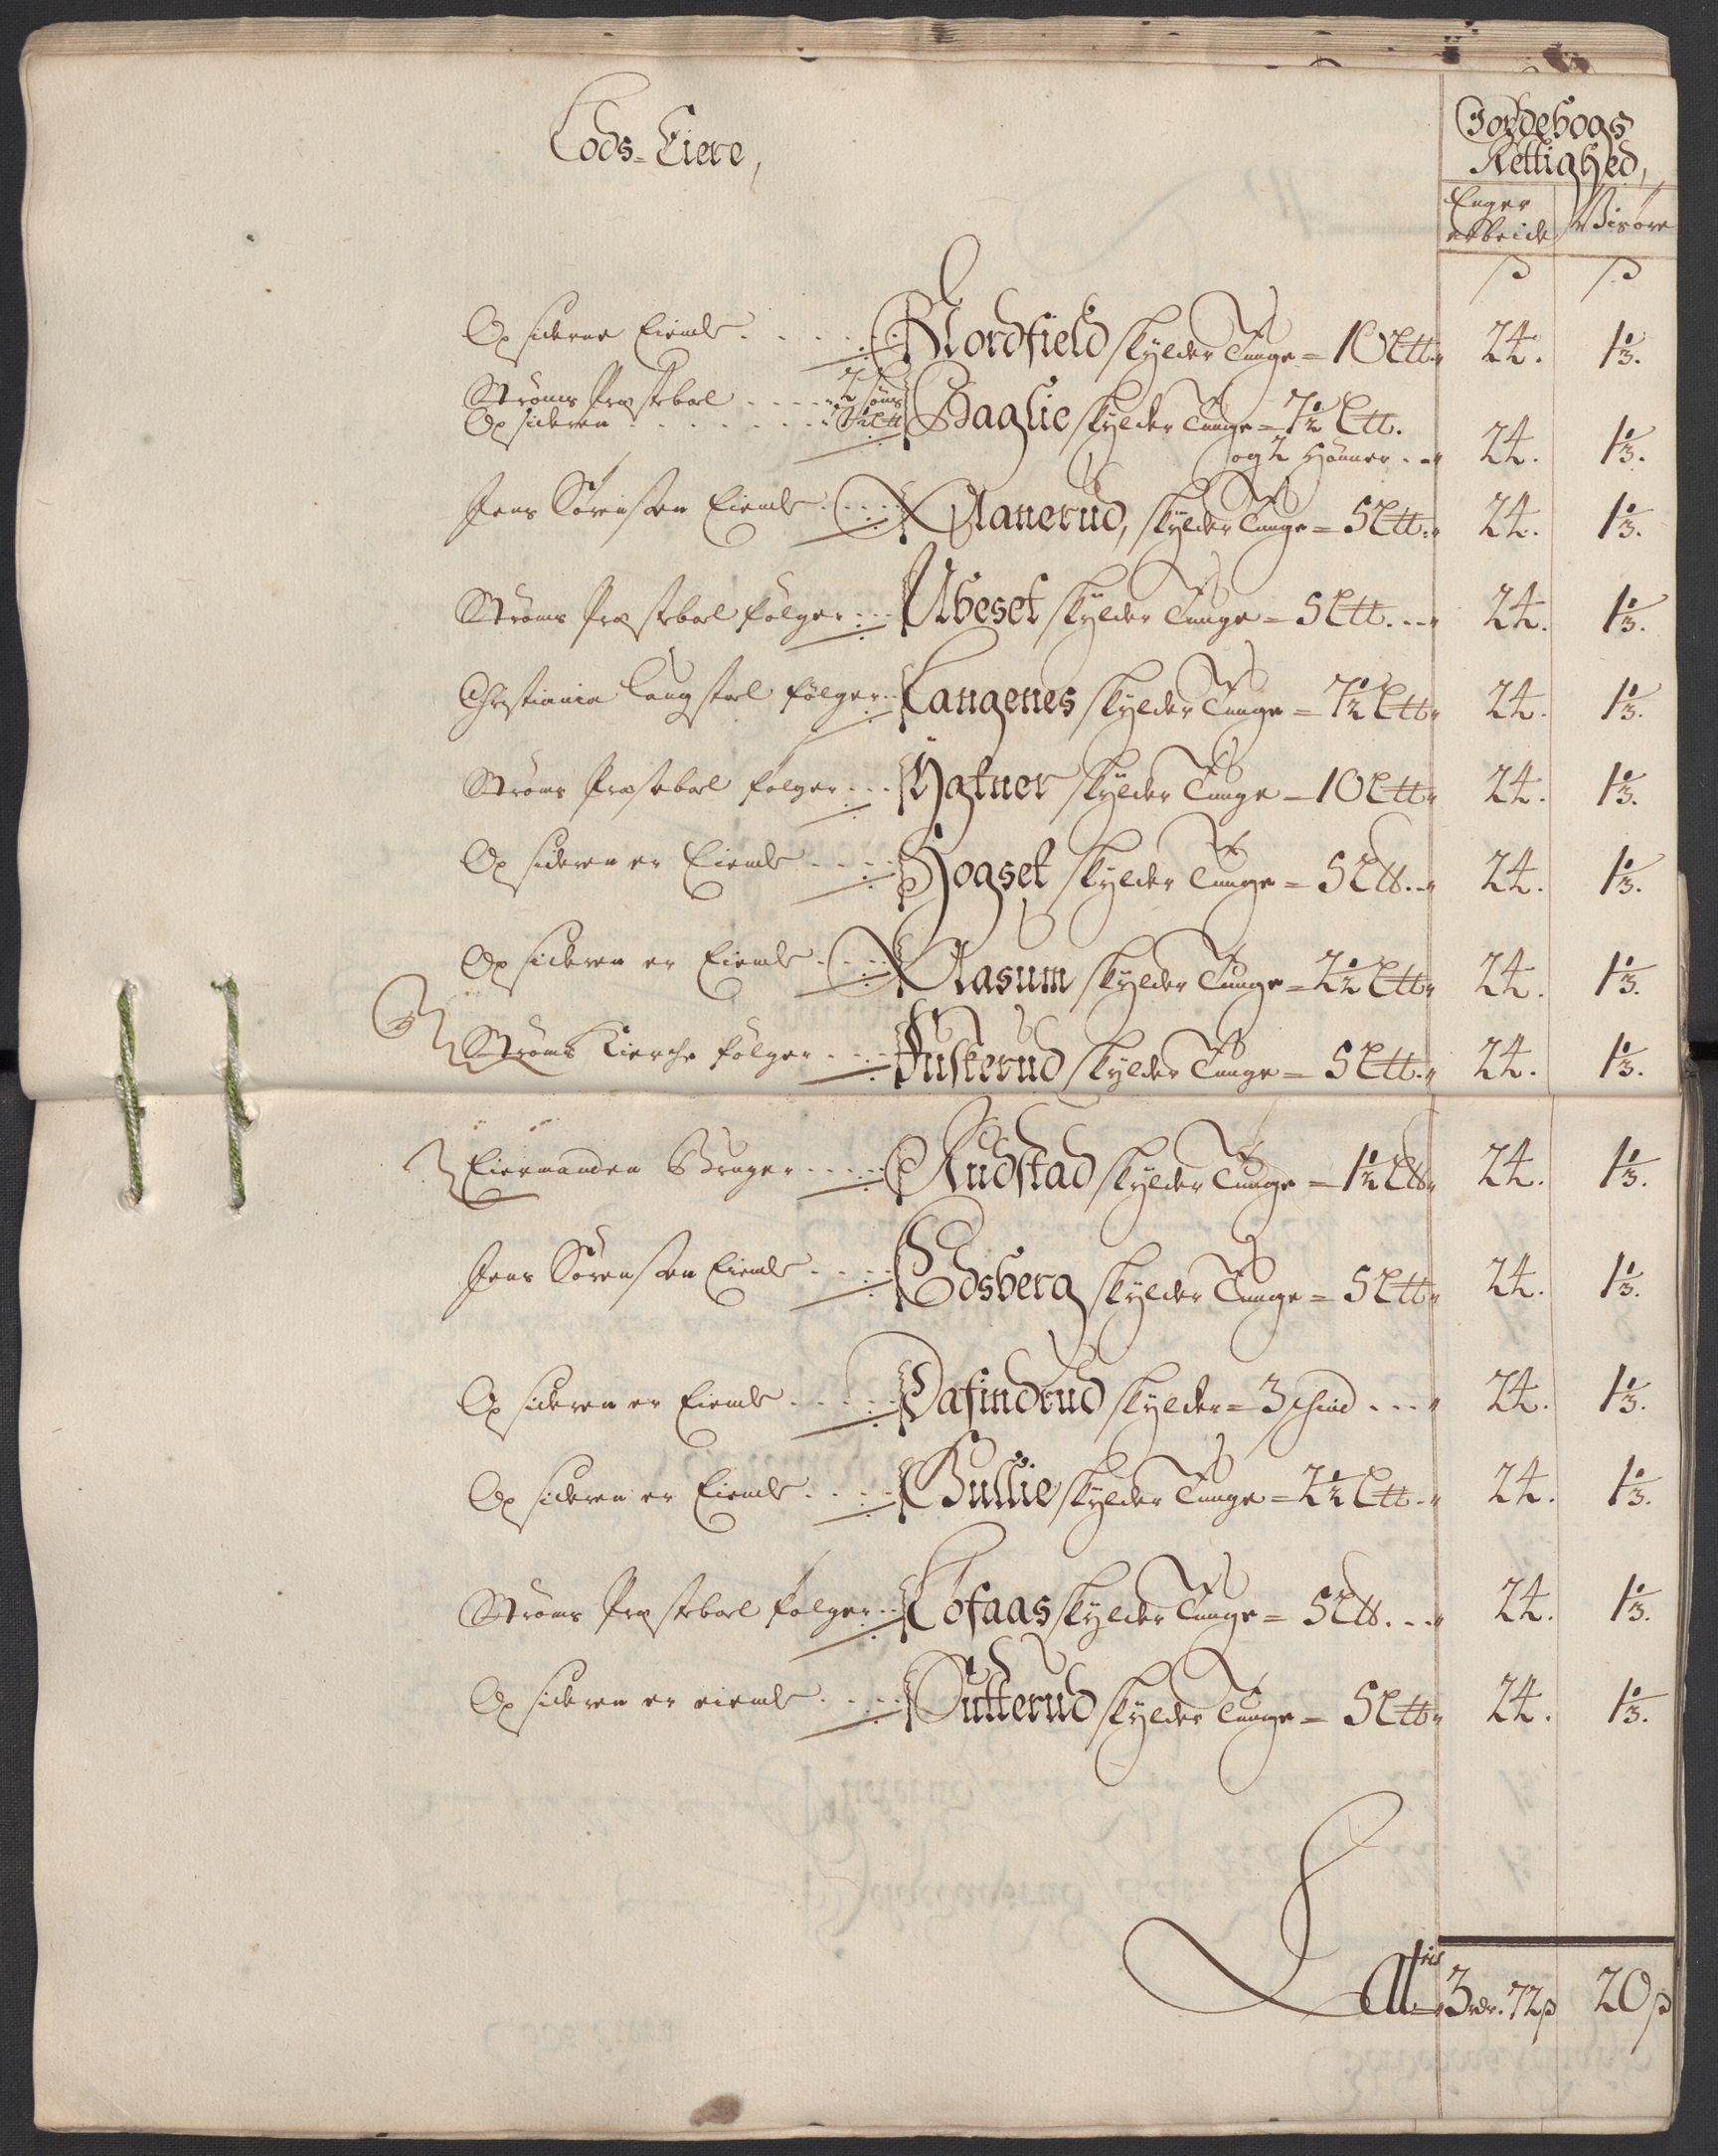 Lods-Eiere,
Jordebogs
Rettighed,
Enger arbeide | Visøre
ß | ß
Opsiderne Eiende . . . . Nordfield skylder Tunge = 10 Ltt. | 24. | 1 1/3.
Strøms Prestebol . . . . 2 høns
Opsideren . . . . . . 7½ Ltt. Haglie skylder Tunge = 7½ Ltt.
og 2 Hønner . . | 24. | 1 1/3.
Jens Sørensøn Eiende . . . . Aanerud, skylder Tunge = 5 Ltt. | 24. | 1 1/3.
Strøms Prestebol følger . . . Ubeset skylder Tunge = 5 Ltt. . . | 24. | 1 1/3.
Christiania Laugstol følger . . Langenes skylder Tunge = 7½ Ltt. | 24. | 1 1/3.
Strøms Prestebol følger . . . Hafner skylder Tunge = 10 Ltt. | 24. | 1 1/3.
Opsideren er Eiende . . . . Hogset skylder Tunge = 5 Ltt. . | 24. | 1 1/3.
Opsideren er Eiende . . . . Aasum skylder Tunge = 2½ Ltt. | 24. | 1 1/3.
Strøms Kierche følger . . . Fuskerud skylder Tunge = 5 Ltt. | 24. | 1 1/3.
Eiermanden Bruger . . . . . Rudstad skylder Tunge = 1½ Ltt. | 24. | 1 1/3.
Jens Sørensøn Eiende . . . . Edsberg skylder Tunge = 5 Ltt. | 24. | 1 1/3.
Opsideren er Eiende . . . . . Dafindrud skylder = 3 schind . . . | 24. | 1 1/3.
Opsideren er Eiende . . . . Gullie skylder Tunge = 2½ Ltt. | 24. | 1 1/3.
Strøms Prestebol følger . . Tofaas skylder Tunge = 5 Ltt. . . | 24. | 1 1/3.
Opsideren er eiende . . . . Dutterud skylder Tunge = 5 Ltt. | 24. | 1 1/3.
Lattus 3 rdr. 72 ß | 20 ß